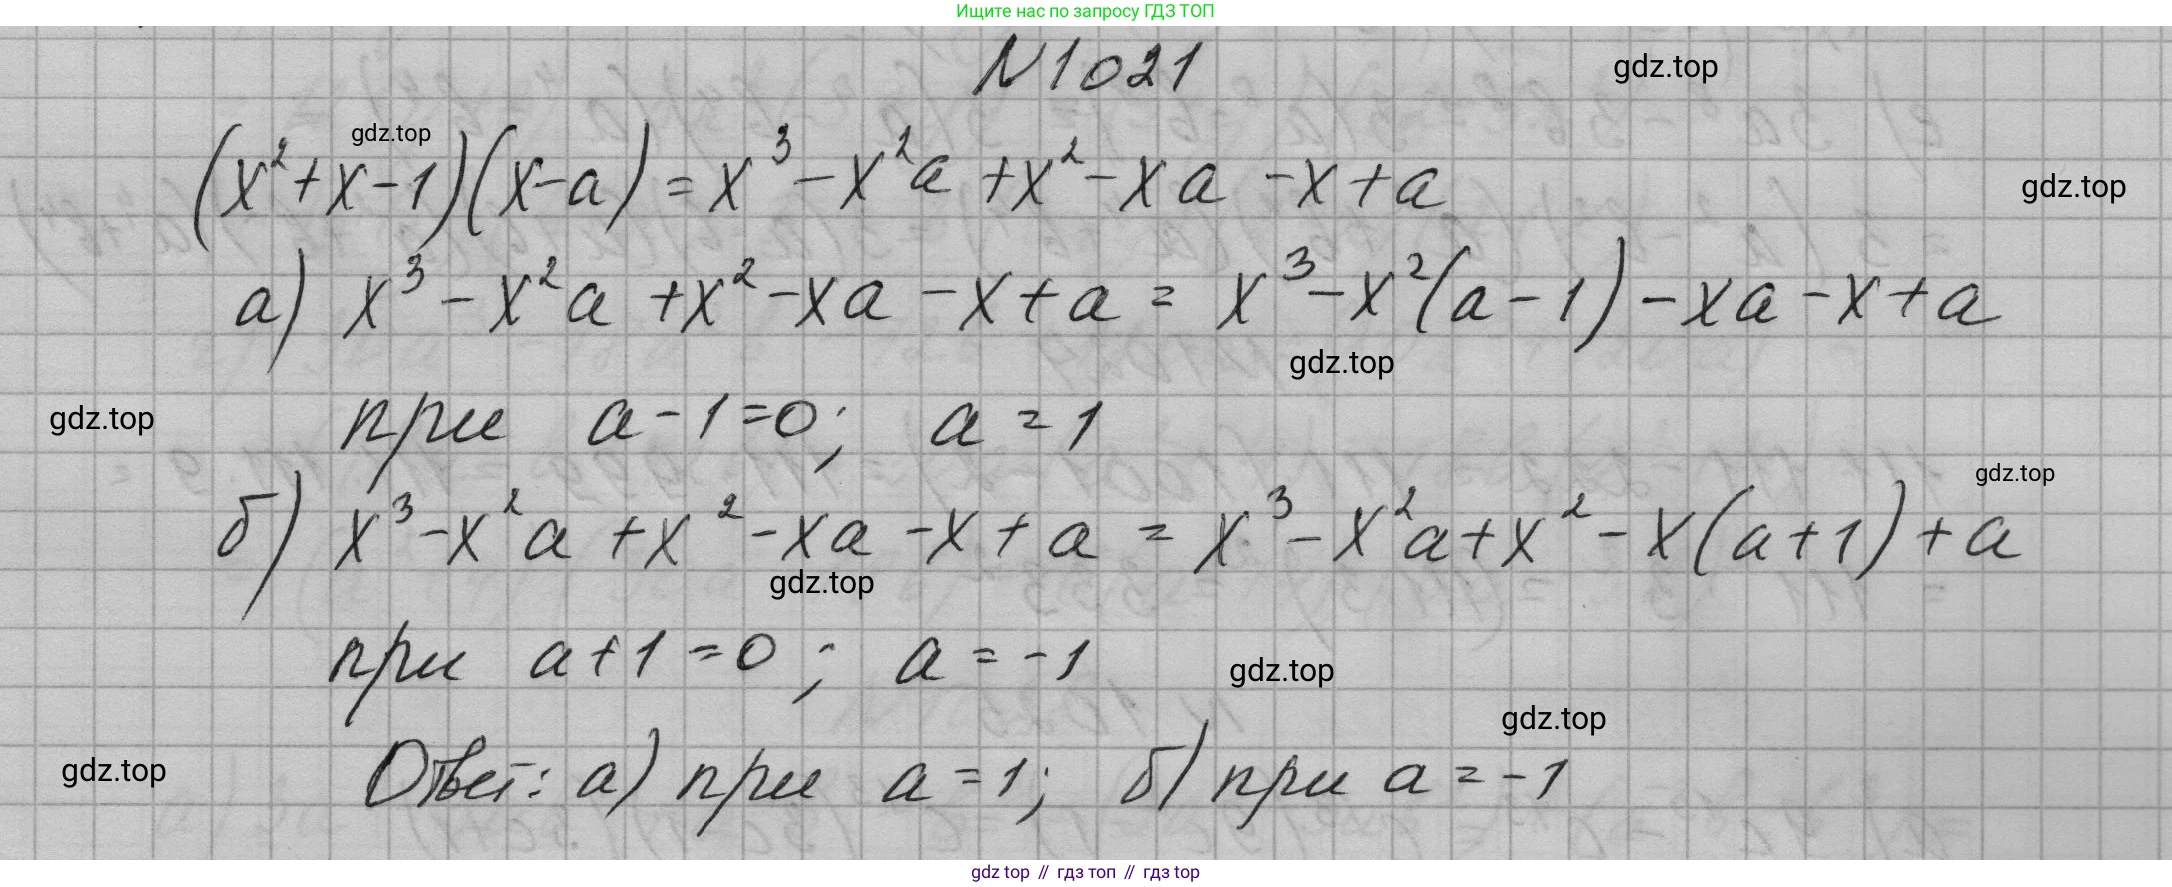 Ищите нас по запросу ГДЗ ТОП
N1021
gdz.top
gdz.top
(x²+x-1)(x-a)=x³-x²a+x²-xa-x+a
gdz.top
а) x³-x²a+x²-xa-x+a=x³-x²(a-1)-xa-x+a
gdz.top
gdz.top
при a-1=0; a=1
gdz.top
б) x³-x²a+x²-xa-x+a=x³-x²a+x²-x(a+1)+a
gdz.top
при a+1=0; a=-1
gdz.top
gdz.top
gdz.top
Ответ: а) при a=1; б) при a=-1
gdz top // гдз топ // гдз top